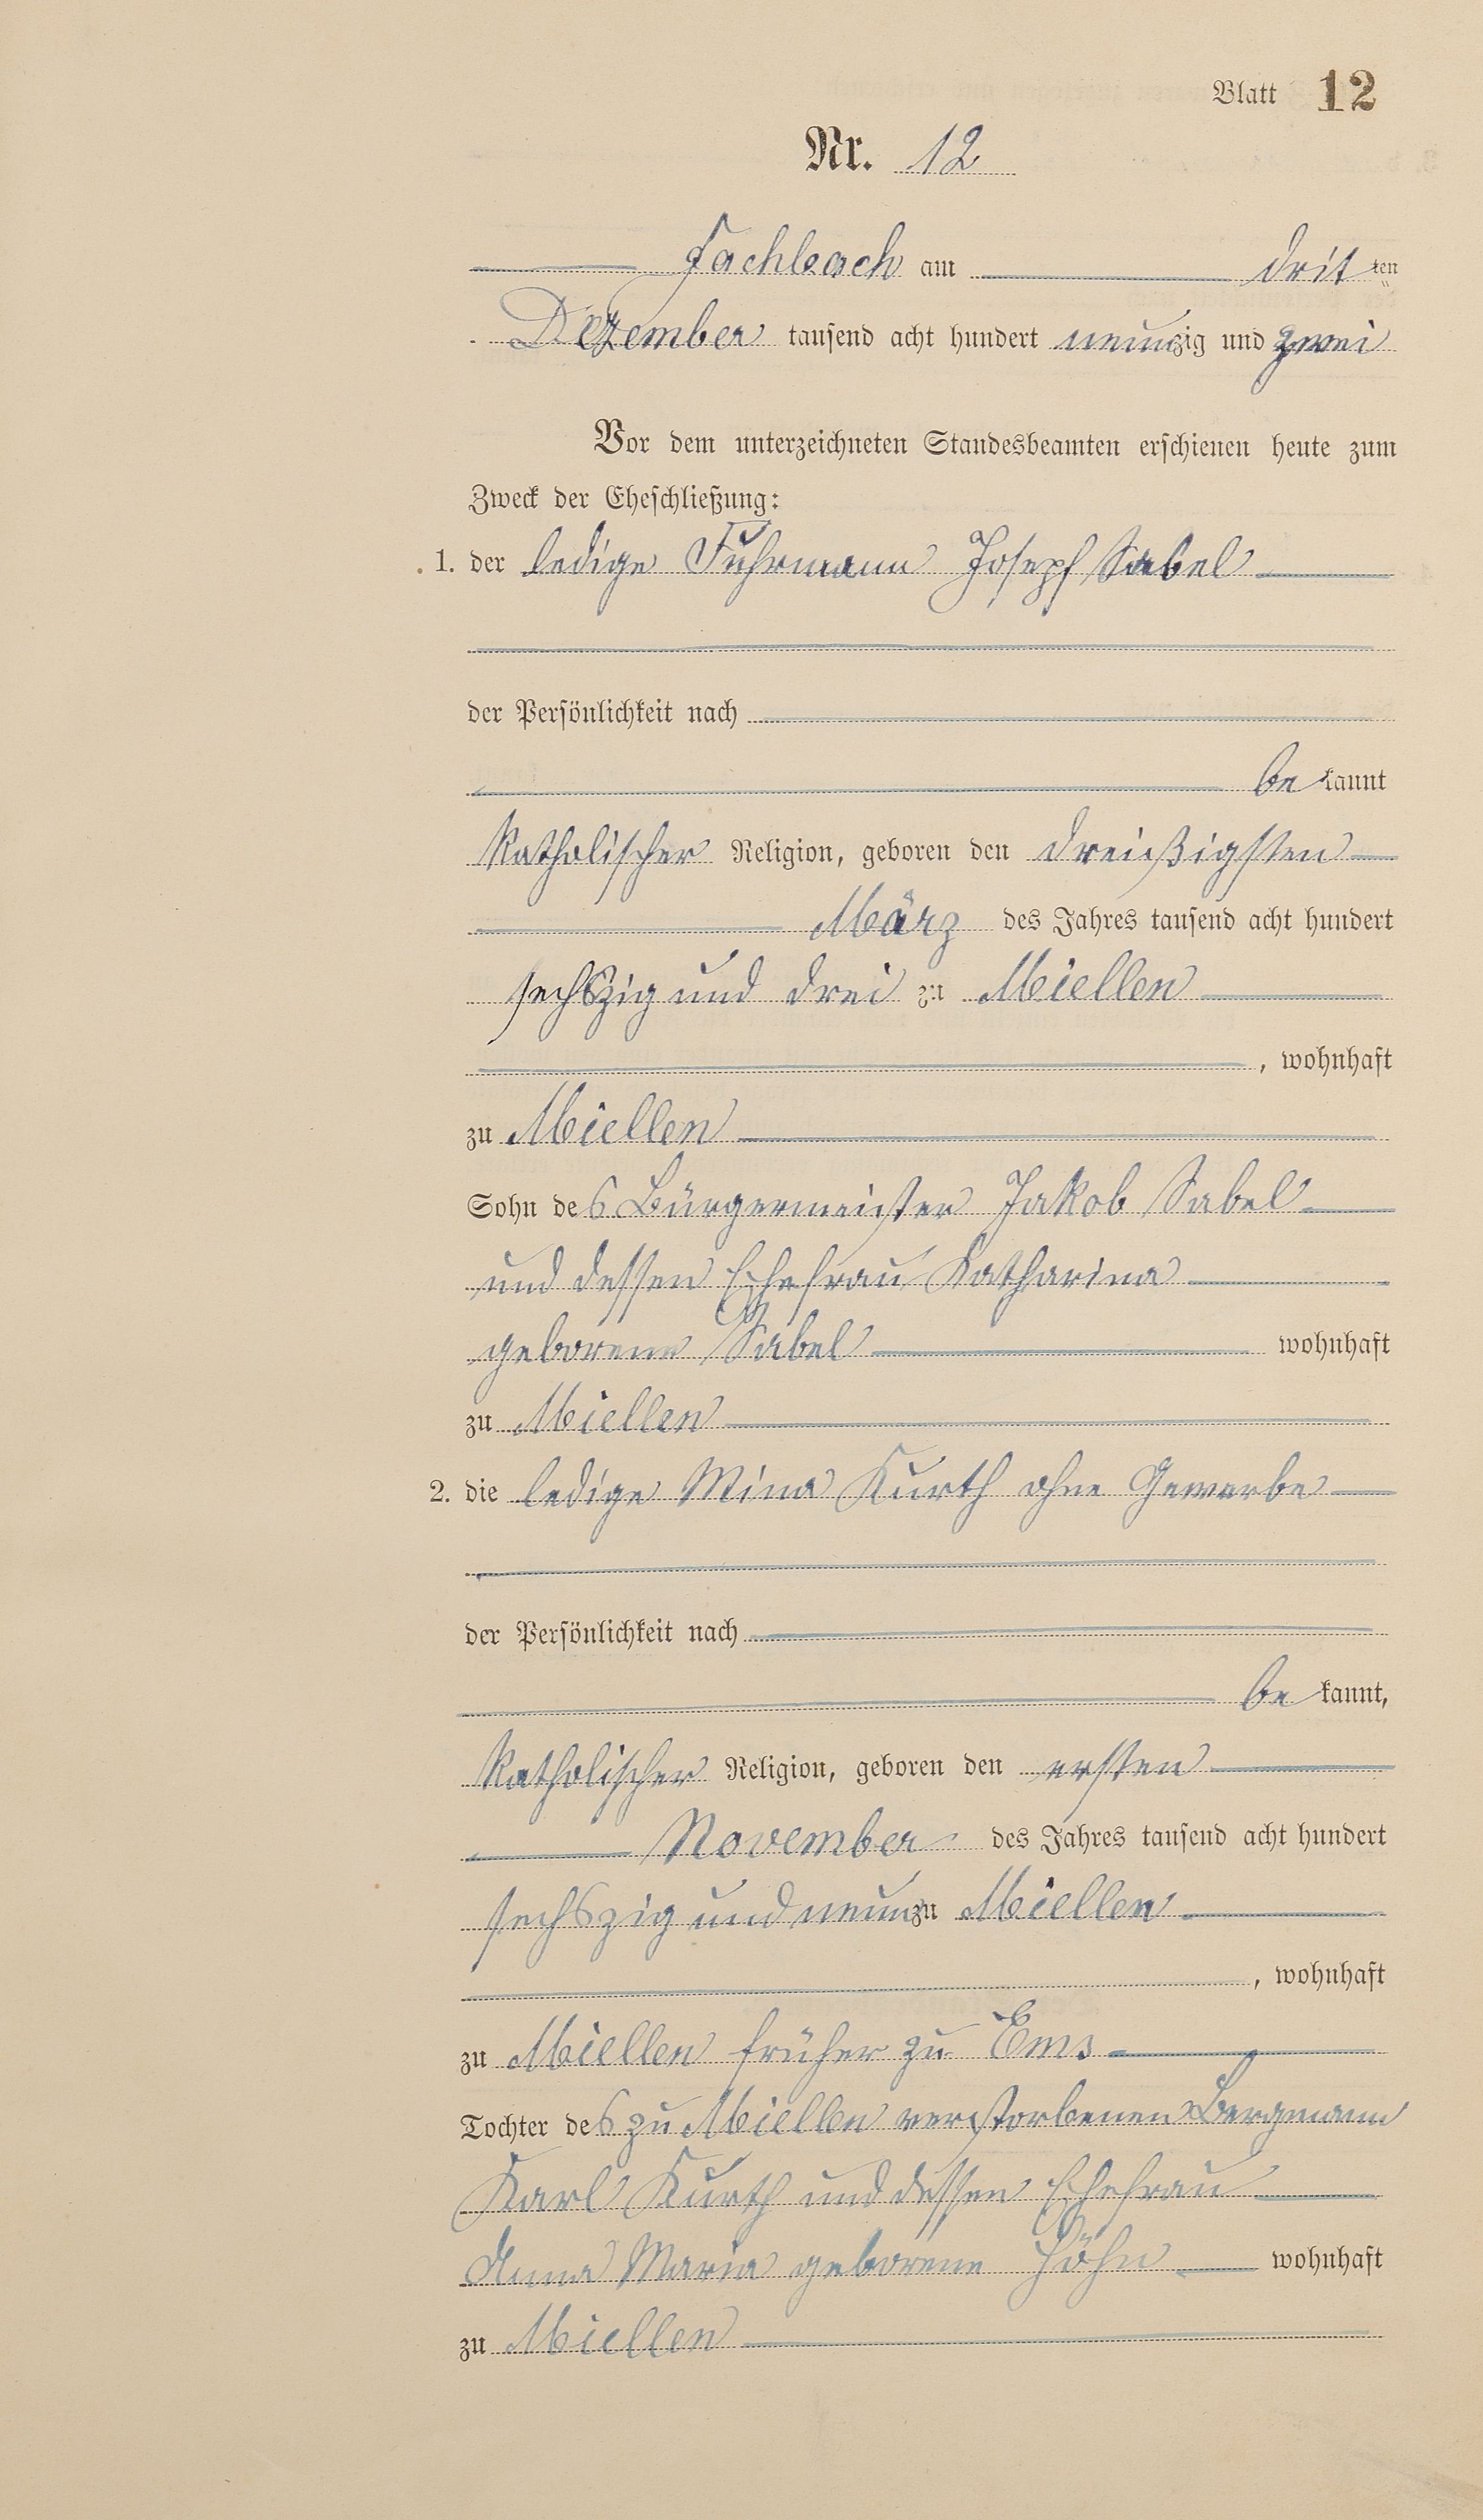 Blatt 12
Nr. 12
Fachbach am dritten
Dezember tausend acht hundert neunzig und zwei
Vor dem unterzeichneten Standesbeamten erschienen heute zum
Zweck der Eheschließung:
1. der ledige Fuhrmann Joseph Sabel
der Persönlichkeit nach
bekannt
katholischer Religion, geboren den dreißigsten
März des Jahres tausend acht hundert
sechszig und drei zu Miellen
, wohnhaft
zu Miellen
Sohn des Bürgermeister Jakob Sabel
und dessen Ehefrau Katharina
geborene Sabel wohnhaft
zu Miellen
2. die ledige Mina Kurth ohne Gewerbe
der Persönlichkeit nach
bekannt,
katholischer Religion, geboren den ersten
November des Jahres tausend acht hundert
sechszig und neun zu Miellen
, wohnhaft
zu Miellen früher zu Ems
Tochter des zu Miellen verstorbenen Bergmann
Karl Kurth und dessen Ehefrau
Anna Maria geborene Höhn wohnhaft
zu Miellen